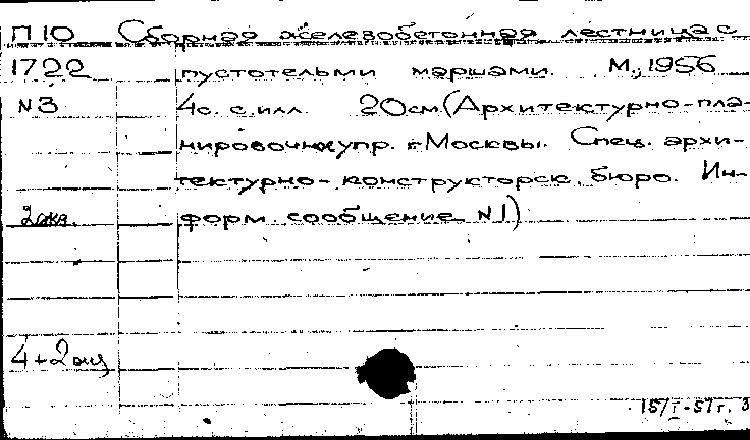 П10 Сборная железобетонная лестница с
1722 пустотелыми маршами. М., 1956
N3 4с. с илл. 20см (Архитектурно-пла-
нировочное упр. г. Москвы. Спец. архи-
тектурно-конструкторск. бюро. Ин-
2 экз. форм. сообщение N1)
4+2 экз
15/I-57г. 3